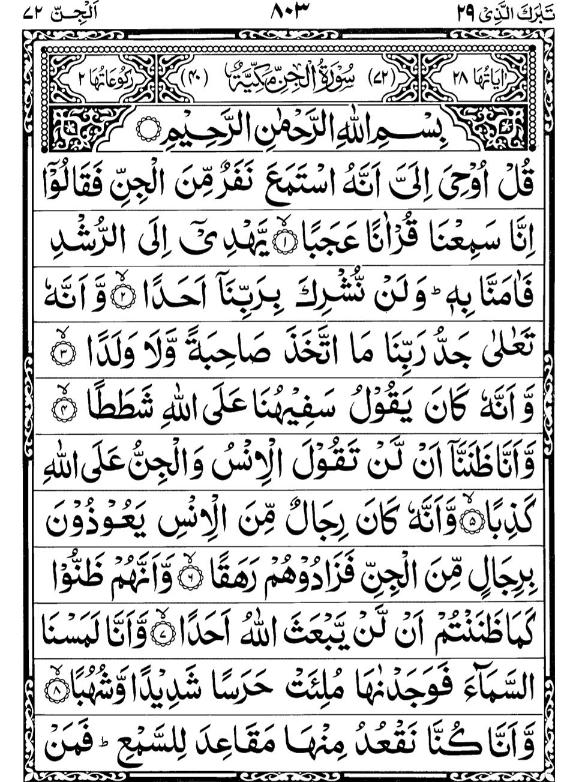 تَبٰرَكَ الَّذِیْ ۲۹ ۸۰۳ اَلْجِنّ ۷۲
اٰیَاتُهَا ۲۸ (۷۲) سُوْرَةُ الْجِنِّ مَكِّیَّةٌ (۴۰) رُكُوْعَاتُهَا ۲
بِسْمِ اللّٰهِ الرَّحْمٰنِ الرَّحِیْمِ
قُلْ اُوْحِیَ اِلَیَّ اَنَّهُ اسْتَمَعَ نَفَرٌ مِّنَ الْجِنِّ فَقَالُوْۤا
اِنَّا سَمِعْنَا قُرْاٰنًا عَجَبًا ۙ‏﴿۱﴾ یَّهْدِیْۤ اِلَی الرُّشْدِ
فَاٰمَنَّا بِهٖ ؕ وَلَنْ نُّشْرِكَ بِرَبِّنَاۤ اَحَدًا ۙ‏﴿۲﴾ وَّ اَنَّهٗ
تَعٰلٰی جَدُّ رَبِّنَا مَا اتَّخَذَ صَاحِبَةً وَّلَا وَلَدًا ۙ‏﴿۳﴾
وَّ اَنَّهٗ كَانَ یَقُوْلُ سَفِیْهُنَا عَلَی اللّٰهِ شَطَطًا ۙ‏﴿۴﴾
وَّ اَنَّا ظَنَنَّاۤ اَنْ لَّنْ تَقُوْلَ الْاِنْسُ وَ الْجِنُّ عَلَی اللّٰهِ
كَذِبًا ۙ‏﴿۵﴾ وَّ اَنَّهٗ كَانَ رِجَالٌ مِّنَ الْاِنْسِ یَعُوْذُوْنَ
بِرِجَالٍ مِّنَ الْجِنِّ فَزَادُوْهُمْ رَهَقًا ۙ‏﴿۶﴾ وَّ اَنَّهُمْ ظَنُّوْا
كَمَا ظَنَنْتُمْ اَنْ لَّنْ یَّبْعَثَ اللّٰهُ اَحَدًا ۙ‏﴿۷﴾ وَّ اَنَّا لَمَسْنَا
السَّمَآءَ فَوَجَدْنٰهَا مُلِئَتْ حَرَسًا شَدِیْدًا وَّ شُهُبًا ۙ‏﴿۸﴾
وَّ اَنَّا كُنَّا نَقْعُدُ مِنْهَا مَقَاعِدَ لِلسَّمْعِ ؕ فَمَنْ